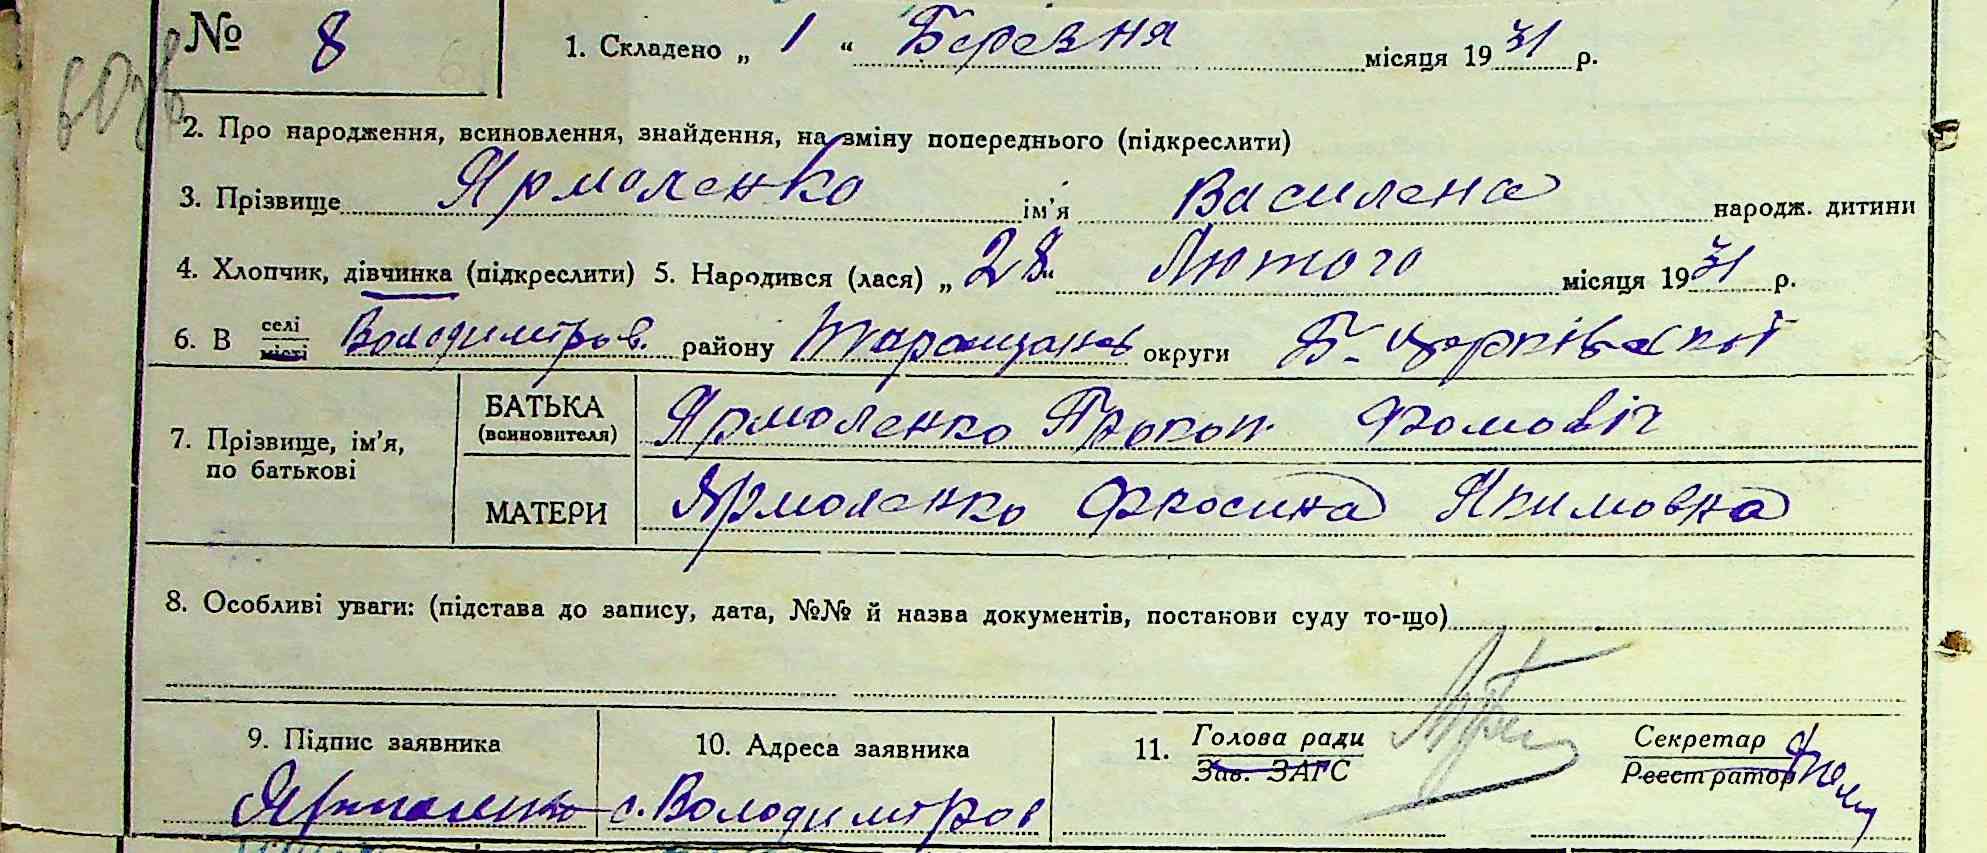 № 8 1. Складено „ 1 “ Березня місяця 1931 р.
2. Про народження, всиновлення, знайдення, на зміну попереднього (підкреслити)
3. Прізвище Ярмоленко ім'я Василена народж. дитини
4. Хлопчик, дівчинка (підкреслити) 5. Народився (лася) „ 28 “ Лютого місяця 1931 р.
6. В селі
місті Володимиров. району Таращанськ округи Б-Церківської
7. Прізвище, ім'я,
по батькові
БАТЬКА
(всиновителя) Ярмоленко Прокоп Фомовіч
МАТЕРИ Ярмоленко Фросина Якимовна
8. Особливі уваги: (підстава до запису, дата, №№ й назва документів, постанови суду то-що)
9. Підпис заявника 10. Адреса заявника 11. Голова ради Секретар
Зав. ЗАГС Реестратор
Ярмоленко с. Володимиров